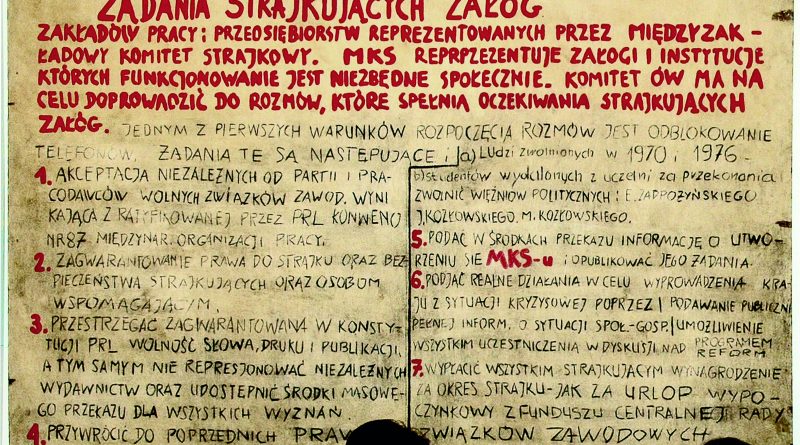 ŻĄDANIA STRAJKUJĄCYCH ZAŁÓG
ZAKŁADÓW PRACY I PRZEDSIĘBIORSTW REPREZENTOWANYCH PRZEZ MIĘDZYZAK-
ŁADOWY KOMITET STRAJKOWY. MKS REPRPZEZENTUJE ZAŁOGI I INSTYTUCJE
KTÓRYCH FUNKCJONOWANIE JEST NIEZBĘDNE SPOŁECZNIE. KOMITET ÓW MA NA
CELU DOPROWADZIĆ DO ROZMÓW, KTÓRE SPEŁNIĄ OCZEKIWANIA STRAJKUJĄCYCH
ZAŁÓG. JEDNYM Z PIERWSZYCH WARUNKÓW ROZPOCZĘCIA ROZMÓW JEST ODBLOKOWANIE
TELEFONÓW. ŻADANIA TE SĄ NASTĘPUJĄCE:
1. AKCEPTACJA NIEZALEŻNYCH OD PARTII I PRA-
CODAWCÓW WOLNYCH ZWIĄZKÓW ZAWOD. WYNI
KAJĄCA Z RATYFIKOWANEJ PRZEZ PRL KONWENCJI
NR 87 MIĘDZYNAR. ORGANIZACJI PRACY.
2. ZAGWARANTOWANIE PRAWA DO STRAJKU ORAZ BEZ-
PIECZEŃSTWA STRAJKUJĄCYCH ORAZ OSOBOM
WSPOMAGAJĄCYM.
3. PRZESTRZEGAĆ ZAGWARANTOWANĄ W KONSTY-
TUCJI PRL WOLNOŚĆ SŁOWA, DRUKU I PUBLIKACJI,
A TYM SAMYM NIE REPRESJONOWAĆ NIEZALEŻNYCH
WYDAWNICTW ORAZ UDOSTĘPNIĆ ŚRODKI MASOWE-
GO PRZEKAZU DLA WSZYSTKICH WYZNAŃ.
4. PRZYWRÓCIĆ DO POPRZEDNICH PRAW
a) LUDZI ZWOLNIONYCH W 1970 I 1976 -
b) STUDENTÓW WYDALONYCH Z UCZELNI ZA PRZEKONANIA
ZWOLNIĆ WIĘŹNIÓW POLITYCZNYCH: E. ZADROŻYŃSKIEGO
J. KOZŁOWSKIEGO. M. KOZŁOWSKIEGO.
5. PODAĆ W ŚRODKACH PRZEKAZU INFORMACJĘ O UTWO-
RZENIU SIĘ MKS-u I OPUBLIKOWAĆ JEGO ŻADANIA.
6. PODJĄĆ REALNE DZIAŁANIA W CELU WYPROWADZENIA KRA-
JU Z SYTUACJI KRYZYSOWEJ POPRZEZ PODAWANIE PUBLICZNIE
PEŁNEJ INFORM. O SYTUACJI SPOŁ-GOSP. UMOŻLIWIENIE
WSZYSTKIM UCZESTNICZENIA W DYSKUSJI NAD PROGRAMEM
REFORM
7. WYPŁACIĆ WSZYSTKIM STRAJKUJĄCYM WYNAGRODZENIE
ZA OKRES STRAJKU-JAK ZA URLOP WYPO-
CZYNKOWY Z FUNDUSZU CENTRALNEJ RADY
ZWIĄZKÓW ZAWODOWYCH